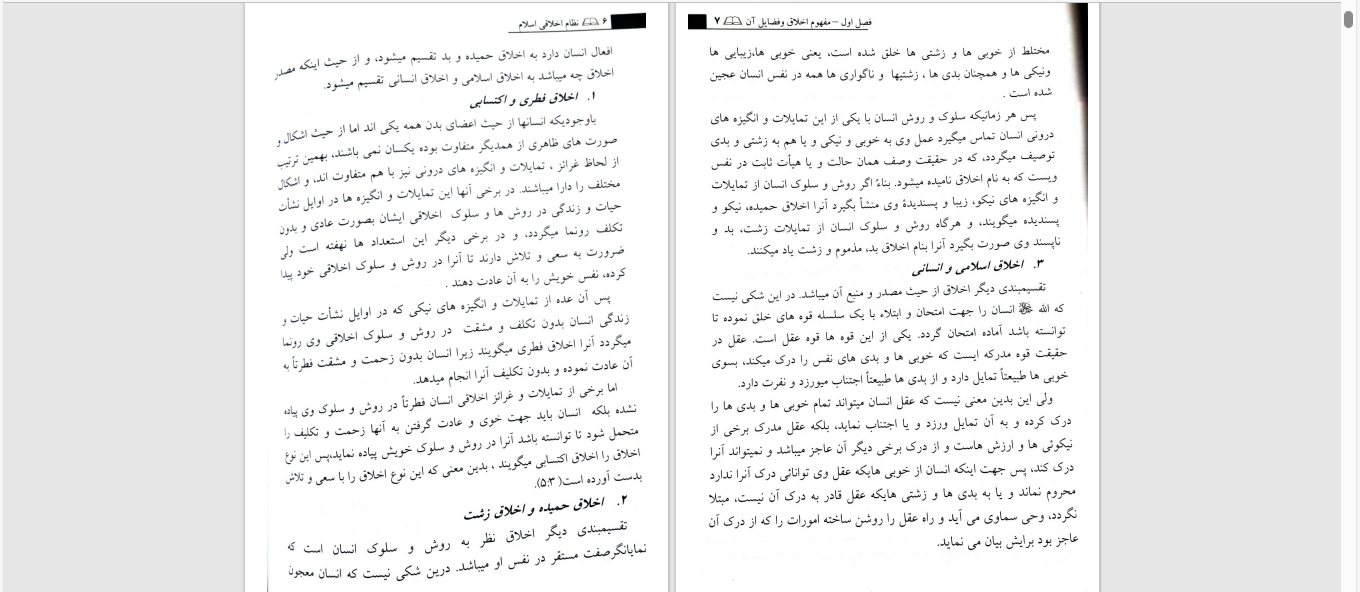 ۶ نظام اخلاقی اسلام
افعال انسان دارد به اخلاق حمیده و بد تقسیم میشود، و از حیث اینکه مصدر
اخلاق چه میباشد به اخلاق اسلامی و اخلاق انسانی تقسیم میشود.
۱. اخلاق فطری و اکتسابی
باوجودیکه انسانها از حیث اعضای بدن همه یکی اند اما از حیث اشکال و
صورت های ظاهری از همدیگر متفاوت بوده یکسان نمی باشند، بهمین ترتیب
از لحاظ غرائز ، تمایلات و انگیزه های درونی نیز با هم متفاوت اند، و اشکال
مختلف را دارا میباشند. در برخی آنها این تمایلات و انگیزه ها در اوایل نشأت
حیات و زندگی در روش ها و سلوک اخلاقی ایشان بصورت عادی و بدون
تکلف رونما میگردد، و در برخی دیگر این استعداد ها نهفته است ولی
ضرورت به سعی و تلاش دارند تا آنرا در روش و سلوک اخلاقی خود پیدا
کرده، نفس خویش را به آن عادت دهند .
پس آن عده از تمایلات و انگیزه های نیکی که در اوایل نشأت حیات و
زندگی انسان بدون تکلف و مشقت در روش و سلوک اخلاقی وی رونما
میگردد آنرا اخلاق فطری میگویند زیرا انسان بدون زحمت و مشقت فطرتاً به
آن عادت نموده و بدون تکلیف آنرا انجام میدهد.
اما برخی از تمایلات و غرائز اخلاقی انسان فطرتاً در روش و سلوک وی پیاده
نشده بلکه انسان باید جهت خوی و عادت گرفتن به آنها زحمت و تکلیف را
متحمل شود تا توانسته باشد آنرا در روش و سلوک خویش پیاده نماید،پس این نوع
اخلاق را اخلاق اکتسابی میگویند ، بدین معنی که این نوع اخلاق را با سعی و تلاش
بدست آورده است(۵:۳).
۲. اخلاق حمیده و اخلاق زشت
تقسیمبندی دیگر اخلاق نظر به روش و سلوک انسان است که
نمایانگرصفت مستقر در نفس او میباشد. درین شکی نیست که انسان معجون
فصل اول – مفهوم اخلاق وفضایل آن ۷
مختلط از خوبی ها و زشتی ها خلق شده است، یعنی خوبی ها،زیبایی ها
ونیکی ها و همچنان بدی ها ، زشتیها و ناگواری ها همه در نفس انسان عجین
شده است .
پس هر زمانیکه سلوک و روش انسان با یکی از این تمایلات و انگیزه های
درونی انسان تماس میگیرد عمل وی به خوبی و نیکی و یا هم به زشتی و بدی
توصیف میگردد، که در حقیقت وصف همان حالت و یا هیأت ثابت در نفس
ویست که به نام اخلاق نامیده میشود. بناءً اگر روش و سلوک انسان از تمایلات
و انگیزه های نیکو، زیبا و پسندیدۀ وی منشأ بگیرد آنرا اخلاق حمیده، نیکو و
پسندیده میگویند، و هرگاه روش و سلوک انسان از تمایلات زشت، بد و
ناپسند وی صورت بگیرد آنرا بنام اخلاق بد، مذموم و زشت یاد میکنند.
۳. اخلاق اسلامی و انسانی
تقسیمبندی دیگر اخلاق از حیث مصدر و منبع آن میباشد. در این شکی نیست
که الله ﷻ انسان را جهت امتحان و ابتلاء با یک سلسله قوه های خلق نموده تا
توانسته باشد آماده امتحان گردد. یکی از این قوه ها قوه عقل است. عقل در
حقیقت قوه مدرکه ایست که خوبی ها و بدی های نفس را درک میکند، بسوی
خوبی ها طبیعتاً تمایل دارد و از بدی ها طبیعتاً اجتناب میورزد و نفرت دارد.
ولی این بدین معنی نیست که عقل انسان میتواند تمام خوبی ها و بدی ها را
درک کرده و به آن تمایل ورزد و یا اجتناب نماید، بلکه عقل مدرک برخی از
نیکوئی ها و ارزش هاست و از درک برخی دیگر آن عاجز میباشد و نمیتواند آنرا
درک کند، پس جهت اینکه انسان از خوبی هایکه عقل وی توانائی درک آنرا ندارد
محروم نماند و یا به بدی ها و زشتی هایکه عقل قادر به درک آن نیست، مبتلا
نگردد، وحی سماوی می آید و راه عقل را روشن ساخته امورات را که از درک آن
عاجز بود برایش بیان می نماید.